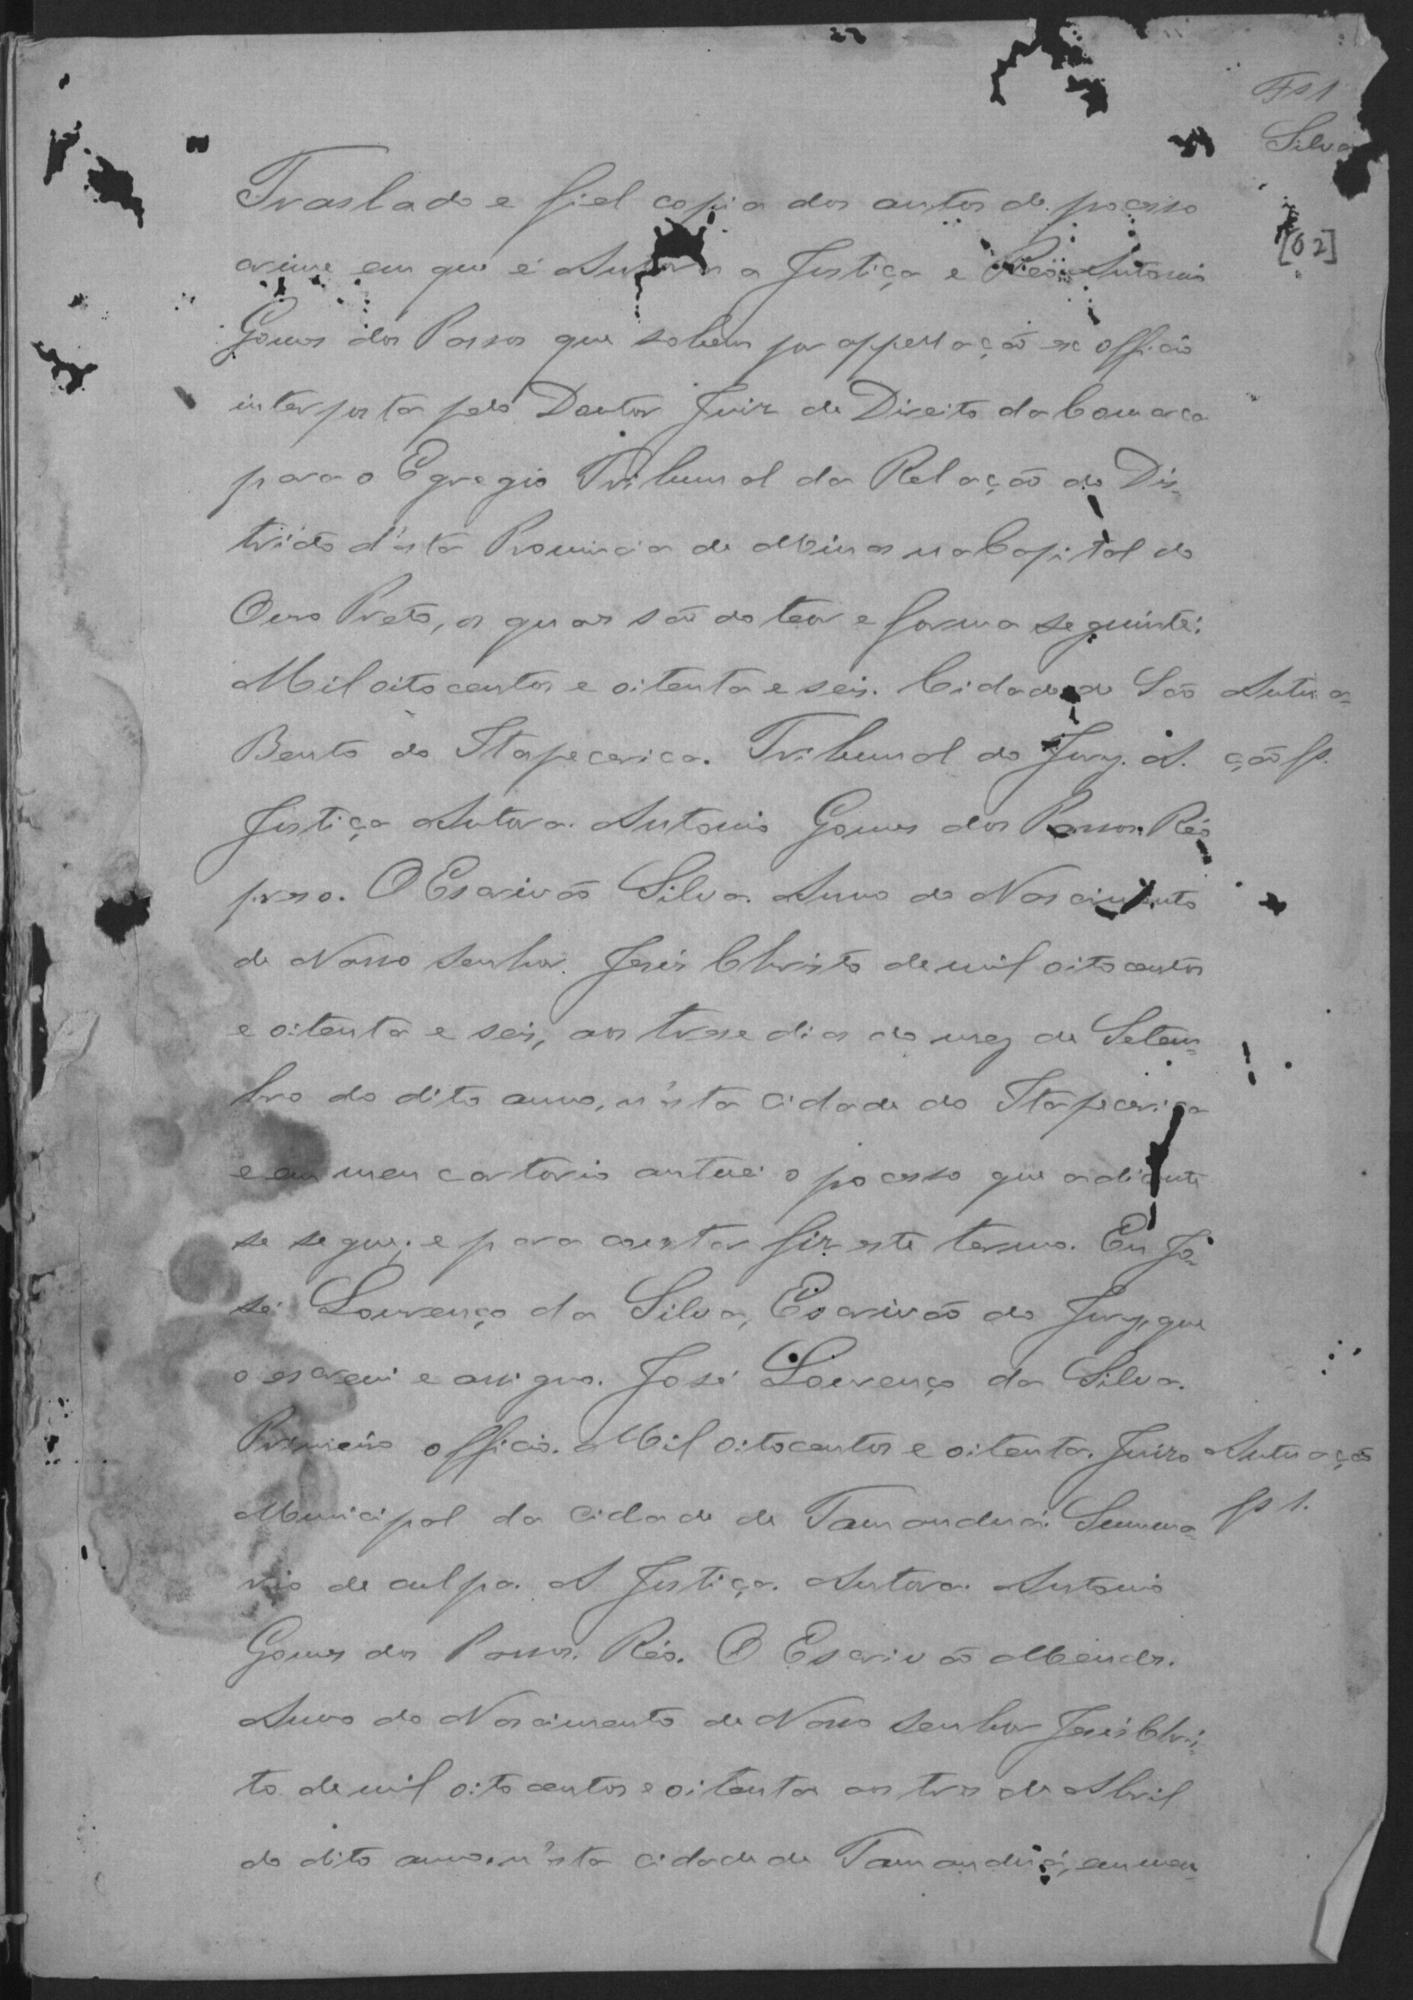 Fs 1
Silva
[02]
Traslado e fiel copia dos autos de processo
crime em que é Autora a Justiça e Réo Antonio
Gomes dos Passos que sobem por appellação ex officio
interposta pelo Doutor Juiz de Direito da Comarca
para o Egregio Tribunal da Relação do Dis-
tricto d'esta Provincia de Minas na Capital do
Ouro Preto, os quaes são do teor e forma seguinte:
Mil oito centos e oitenta e seis. Cidade de São Autua-
Bento do Itapecerica. Tribunal do Jury. A. ção fs.
Justiça Autora. Antonio Gomes dos Passos. Réo
preso. O Escrivão Silva. Anno do Nascimento
de Nosso Senhor Jesús Christo de mil oito centos
e oitenta e seis, aos trese dias do mez de Setem-
bro do dito anno, n'esta cidade do Itapecerica
e em meu cartorio autuei o processo que adiante
se segue; e para constar fiz este termo. Eu Jo-
sé Lourenço da Silva, Escrivão do Jury, que
o escrevi e assigno. José Lourenço da Silva.
Primeiro officio. Mil oitocentos e oitenta. Juizo Autuação
Municipal da cidade de Tamanduá. Summa- fs 1.
rio de culpa. A Justiça. Autora. Antonio
Gomes dos Passos. Réo. O Escrivão Mendes.
Anno do Nascimento de Nosso Senhor Jesús Chris-
to de mil oito centos e oitenta aos tres de Abril
do dito anno, n'esta cidade de Tamanduá, em meu